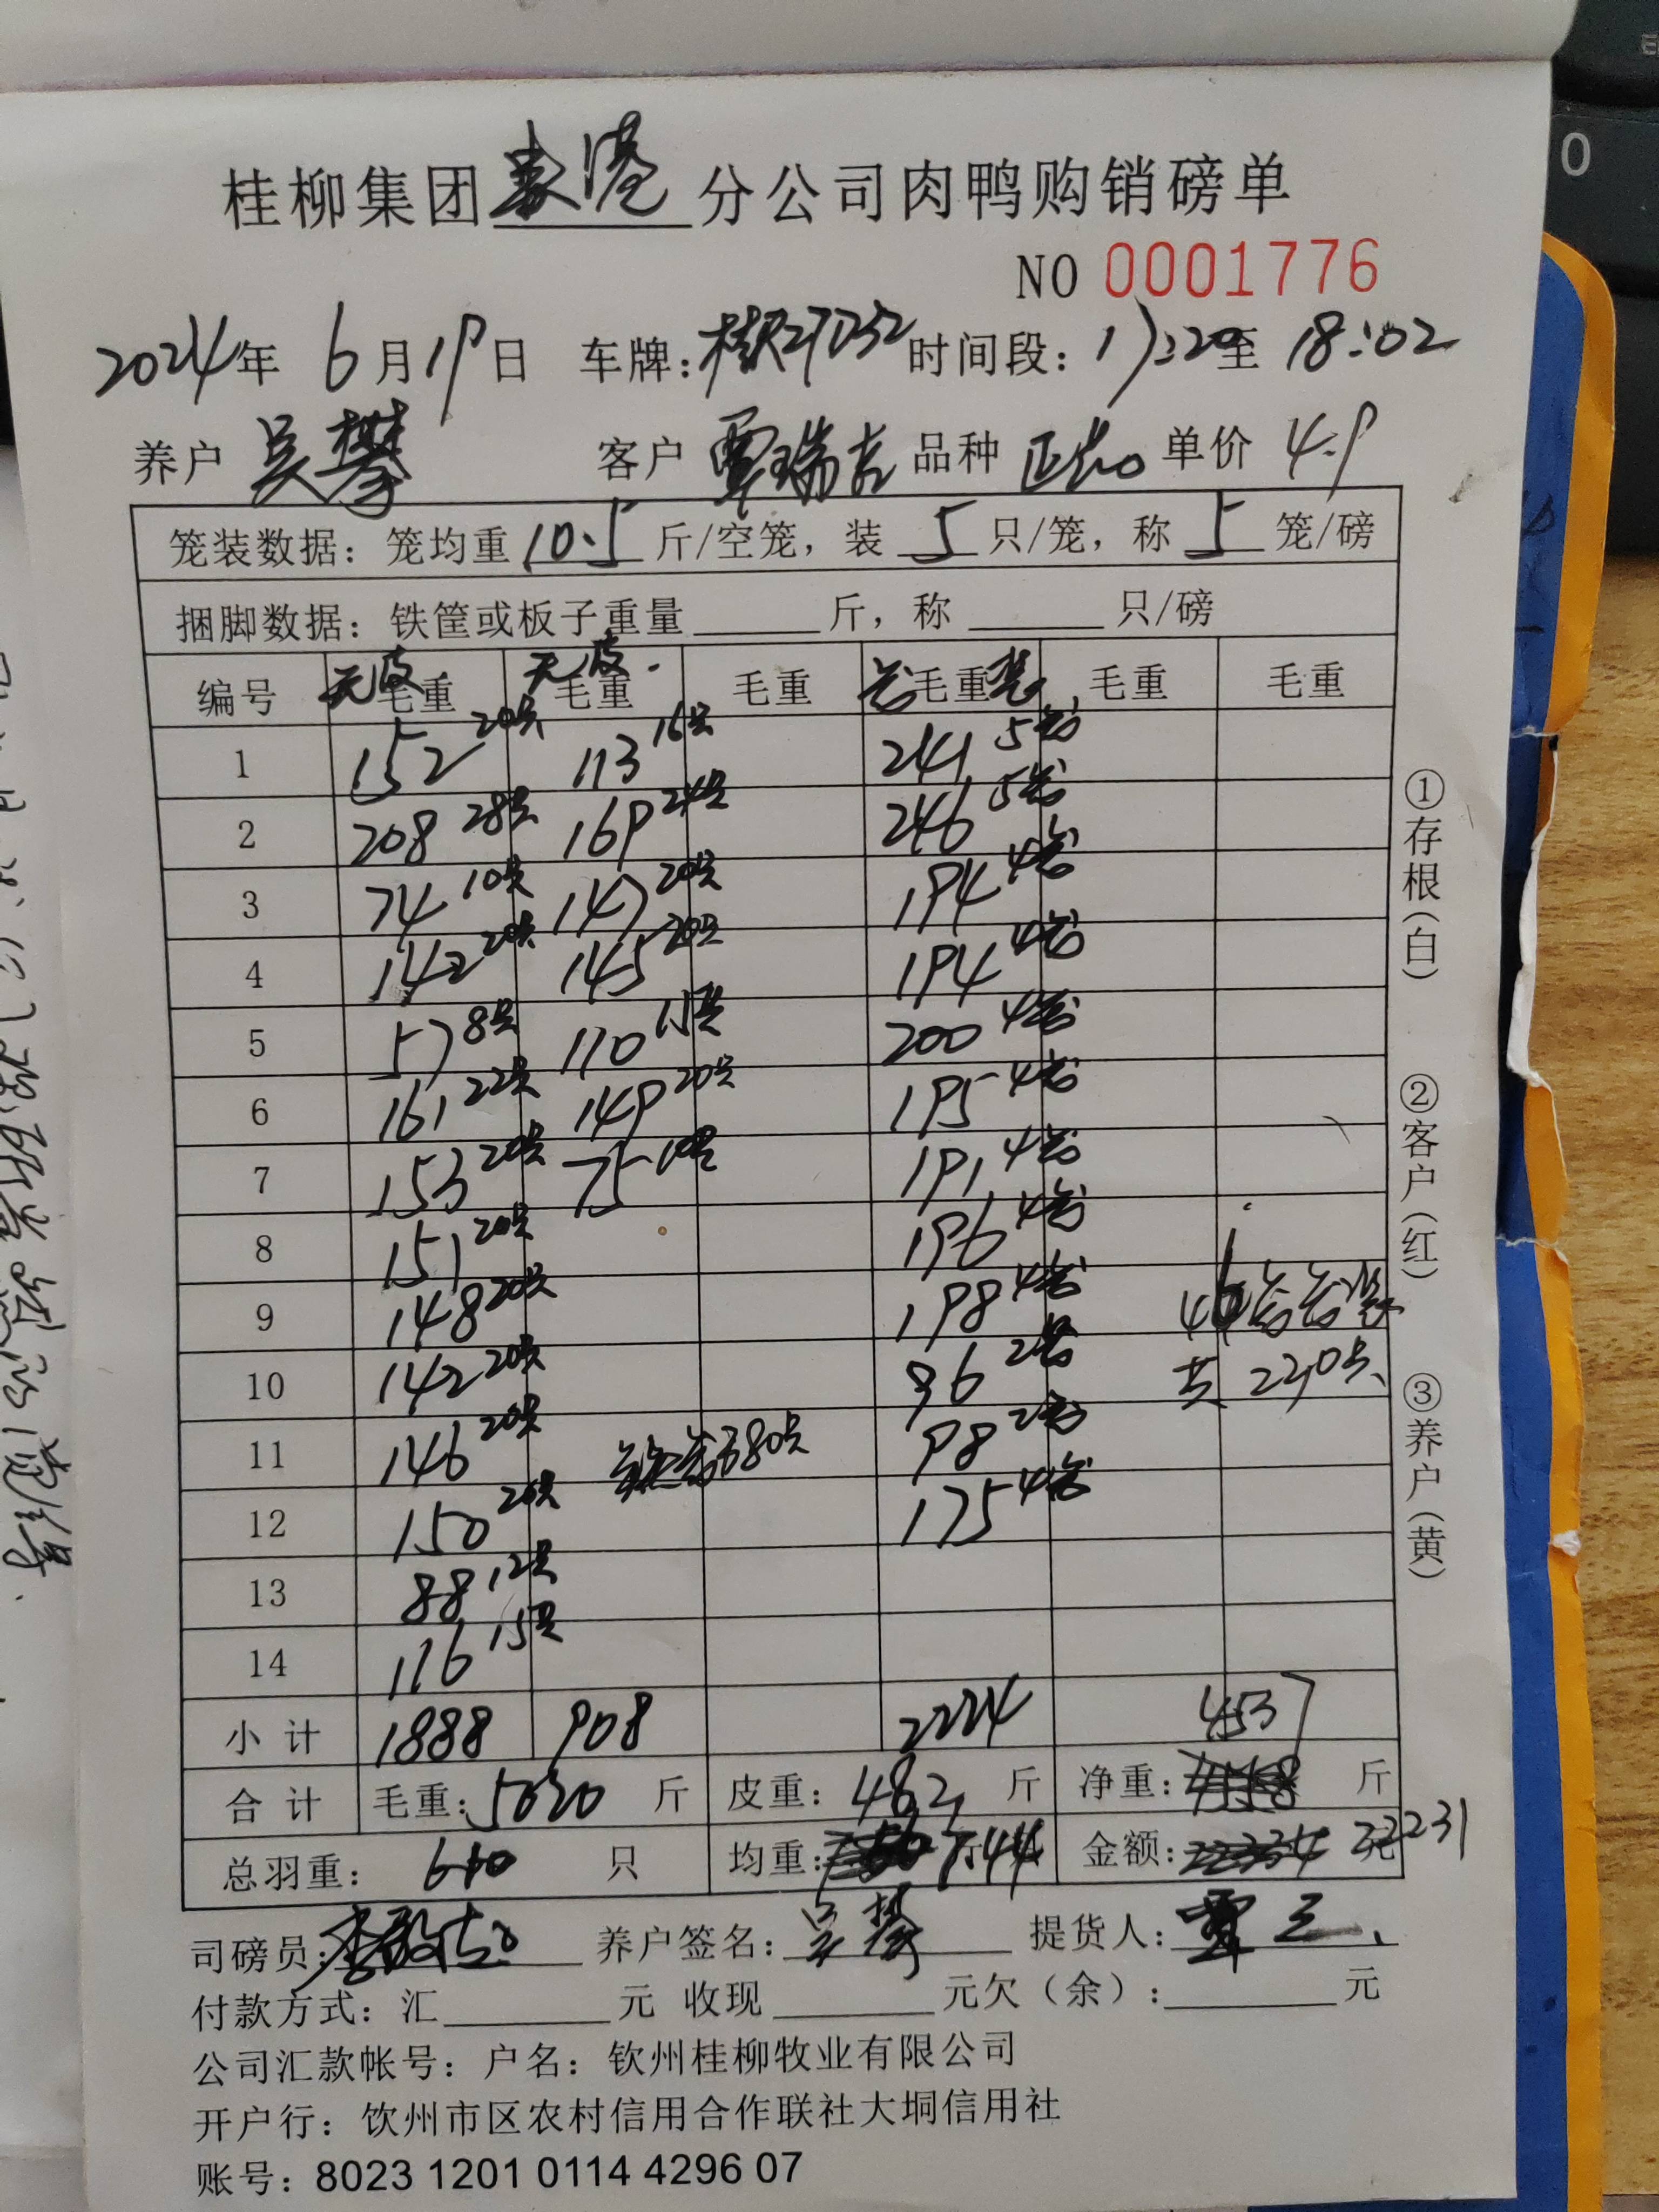 桂柳集团 港 分公司肉鸭购销磅单
NO 0001776
2024年 6月19日 车牌: 时间段: 17:20至 18:02
养户 吴攀 客户 覃瑞吉 品种 单价 4.9
笼装数据: 笼均重 10.5 斤/空笼, 装 5 只/笼, 称 5 笼/磅
捆脚数据: 铁筐或板子重量 斤, 称 只/磅
编号 无皮毛重 无皮毛重 毛重 毛重 毛重 毛重
1 152 20只 113 16只 241 5
2 208 28只 169 24只 246 5
3 74 10只 147 20只 194 4
4 142 20只 145 20只 194 4
5 57 8只 110 15只 200 4
6 161 22只 149 20只 195 4
7 153 20只 75 10只 191 4
8 151 20只 196 4
9 148 20只 198 4 46
10 142 20只 96 2 共 230只
11 146 20只 380只 98 2
12 150 20只 175 4
13 88 12只
14 116 15只
小计 1888 908 2224 4537
合计 毛重: 5020 斤 皮重: 482 斤 净重: 斤
总羽重: 610 只 均重: 7.44 金额: 22231
司磅员: 养户签名: 吴攀 提货人: 覃三
付款方式: 汇 元 收现 元欠(余): 元
公司汇款帐号: 户名: 钦州桂柳牧业有限公司
开户行: 饮州市区农村信用合作联社大垌信用社
账号: 8023 1201 0114 4296 07
①存根(白)
②客户(红)
③养户(黄)